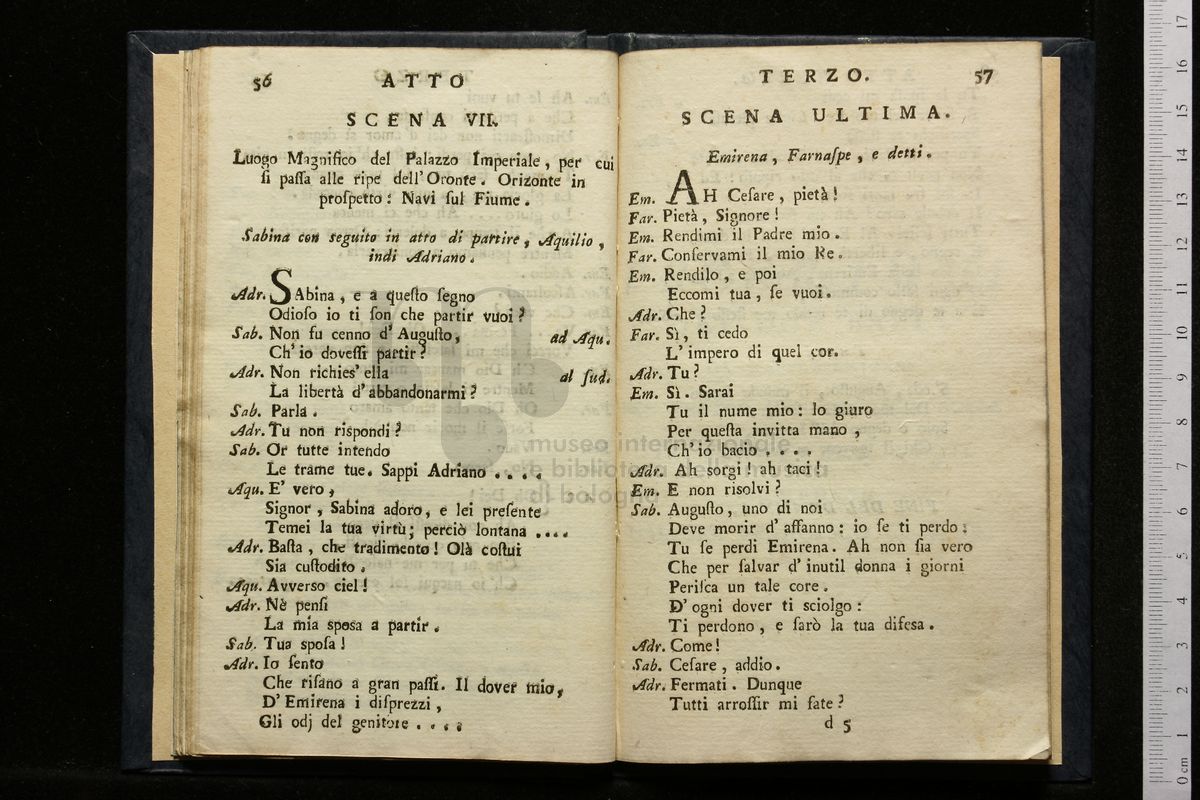 56
ATTO
SCENA VII.
Luogo Magnifico del Palazzo Imperiale, per cui
ſi paſſa alle ripe dell'Oronte. Orizonte in
proſpetto: Navi ſul Fiume.
Sabina con seguito in atto di partire, Aquilio,
indi Adriano.
Adr. SAbina, e a queſto ſegno
Odioſo io ti ſon che partir vuoi?
Sab. Non fu cenno d'Auguſto, ad Aqu.
Ch'io doveſſi partir?
Adr. Non richies' ella al ſud.
La libertà d'abbandonarmi?
Sab. Parla.
Adr. Tu non riſpondi?
Sab. Or tutte intendo
Le trame tue. Sappi Adriano ....
Aqu. E' vero,
Signor, Sabina adoro, e lei preſente
Temei la tua virtù; perciò lontana ....
Adr. Baſta, che tradimento! Olà coſtui
Sia cuſtodito.
Aqu. Avverso ciel!
Adr. Nè penſi
La mia sposa a partir.
Sab. Tua spoſa!
Adr. Io ſento
Che riſano a gran paſſi. Il dover mio,
D'Emirena i diſprezzi,
Gli odj del genitore ....
TERZO.
57
SCENA ULTIMA.
Emirena, Farnaſpe, e detti.
Em. AH Ceſare, pietà!
Far. Pietà, Signore!
Em. Rendimi il Padre mio.
Far. Conſervami il mio Re.
Em. Rendilo, e poi
Eccomi tua, ſe vuoi.
Adr. Che?
Far. Sì, ti cedo
L'impero di quel cor.
Adr. Tu?
Em. Sì. Sarai
Tu il nume mio: lo giuro
Per queſta invitta mano,
Ch'io bacio ....
Adr. Ah sorgi! ah taci!
Em. E non risolvi?
Sab. Auguſto, uno di noi
Deve morir d'affanno: io ſe ti perdo:
Tu ſe perdi Emirena. Ah non ſia vero
Che per ſalvar d'inutil donna i giorni
Periſca un tale core.
D'ogni dover ti sciolgo:
Ti perdono, e ſarò la tua difesa.
Adr. Come!
Sab. Ceſare, addio.
Adr. Fermati. Dunque
Tutti arroſſir mi fate?
d 5
museo internazionale
e biblioteca della musica
di bologna
17
16
15
14
13
12
11
10
9
8
7
6
5
4
3
2
1
0 cm